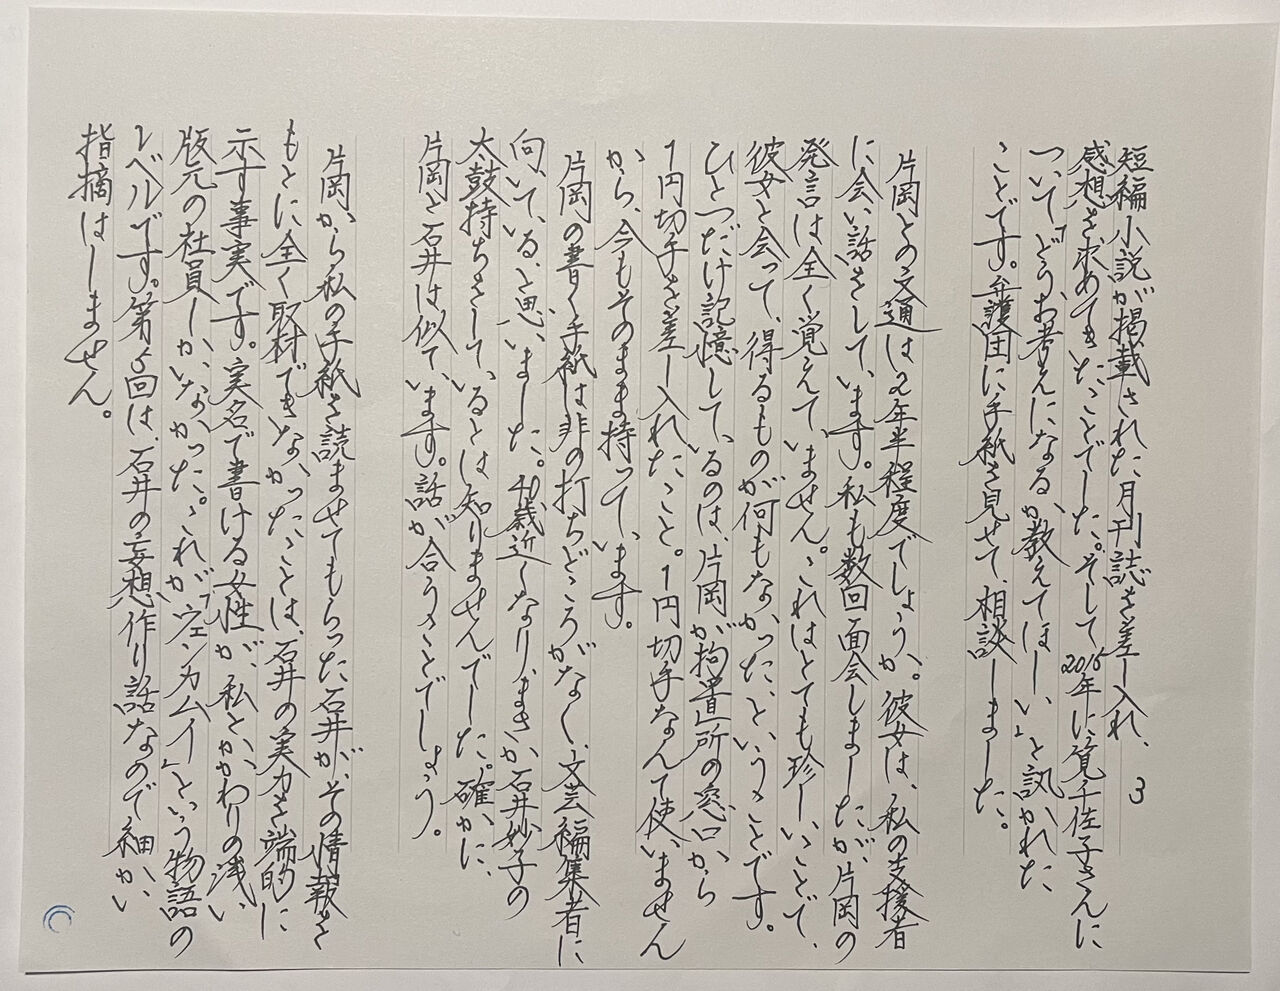 3
短編小説が掲載された月刊誌を差し入れ、
感想を求めてきたことでした。そして2015年に筧千佐子さんに
ついて「どうお考えになるか教えてほしい」と訊かれた
ことです。弁護団に手紙を見せて、相談しました。
片岡との文通は2年半程度でしょうか。彼女は、私の支援者
に会い話をしています。私も数回面会しましたが、片岡の
発言は全く覚えていません。これはとても珍しいことで、
彼女と会って、得るものが何もなかったということです。
ひとつだけ記憶しているのは、片岡が拘置所の窓口から
1円切手を差し入れたこと。1円切手なんて使いません
から、今もそのまま持っています。
片岡の書く手紙は非の打ちどころがなく、文芸編集者に
向いていると思いました。40歳近くなり、まさか石井妙子の
太鼓持ちをしているとは知りませんでした。確かに、
片岡と石井は似ています。話が合うことでしょう。
片岡から私の手紙を読ませてもらった石井が、その情報を
もとに全く取材できなかったことは、石井の実力を端的に
示す事実です。実名で書ける女性が、私とかかわりの浅い
版元の社員しかいなかった。これが「ヴェンカムイ」という物語の
レベルです。第5回は、石井の妄想作り話なので細かい
指摘はしません。